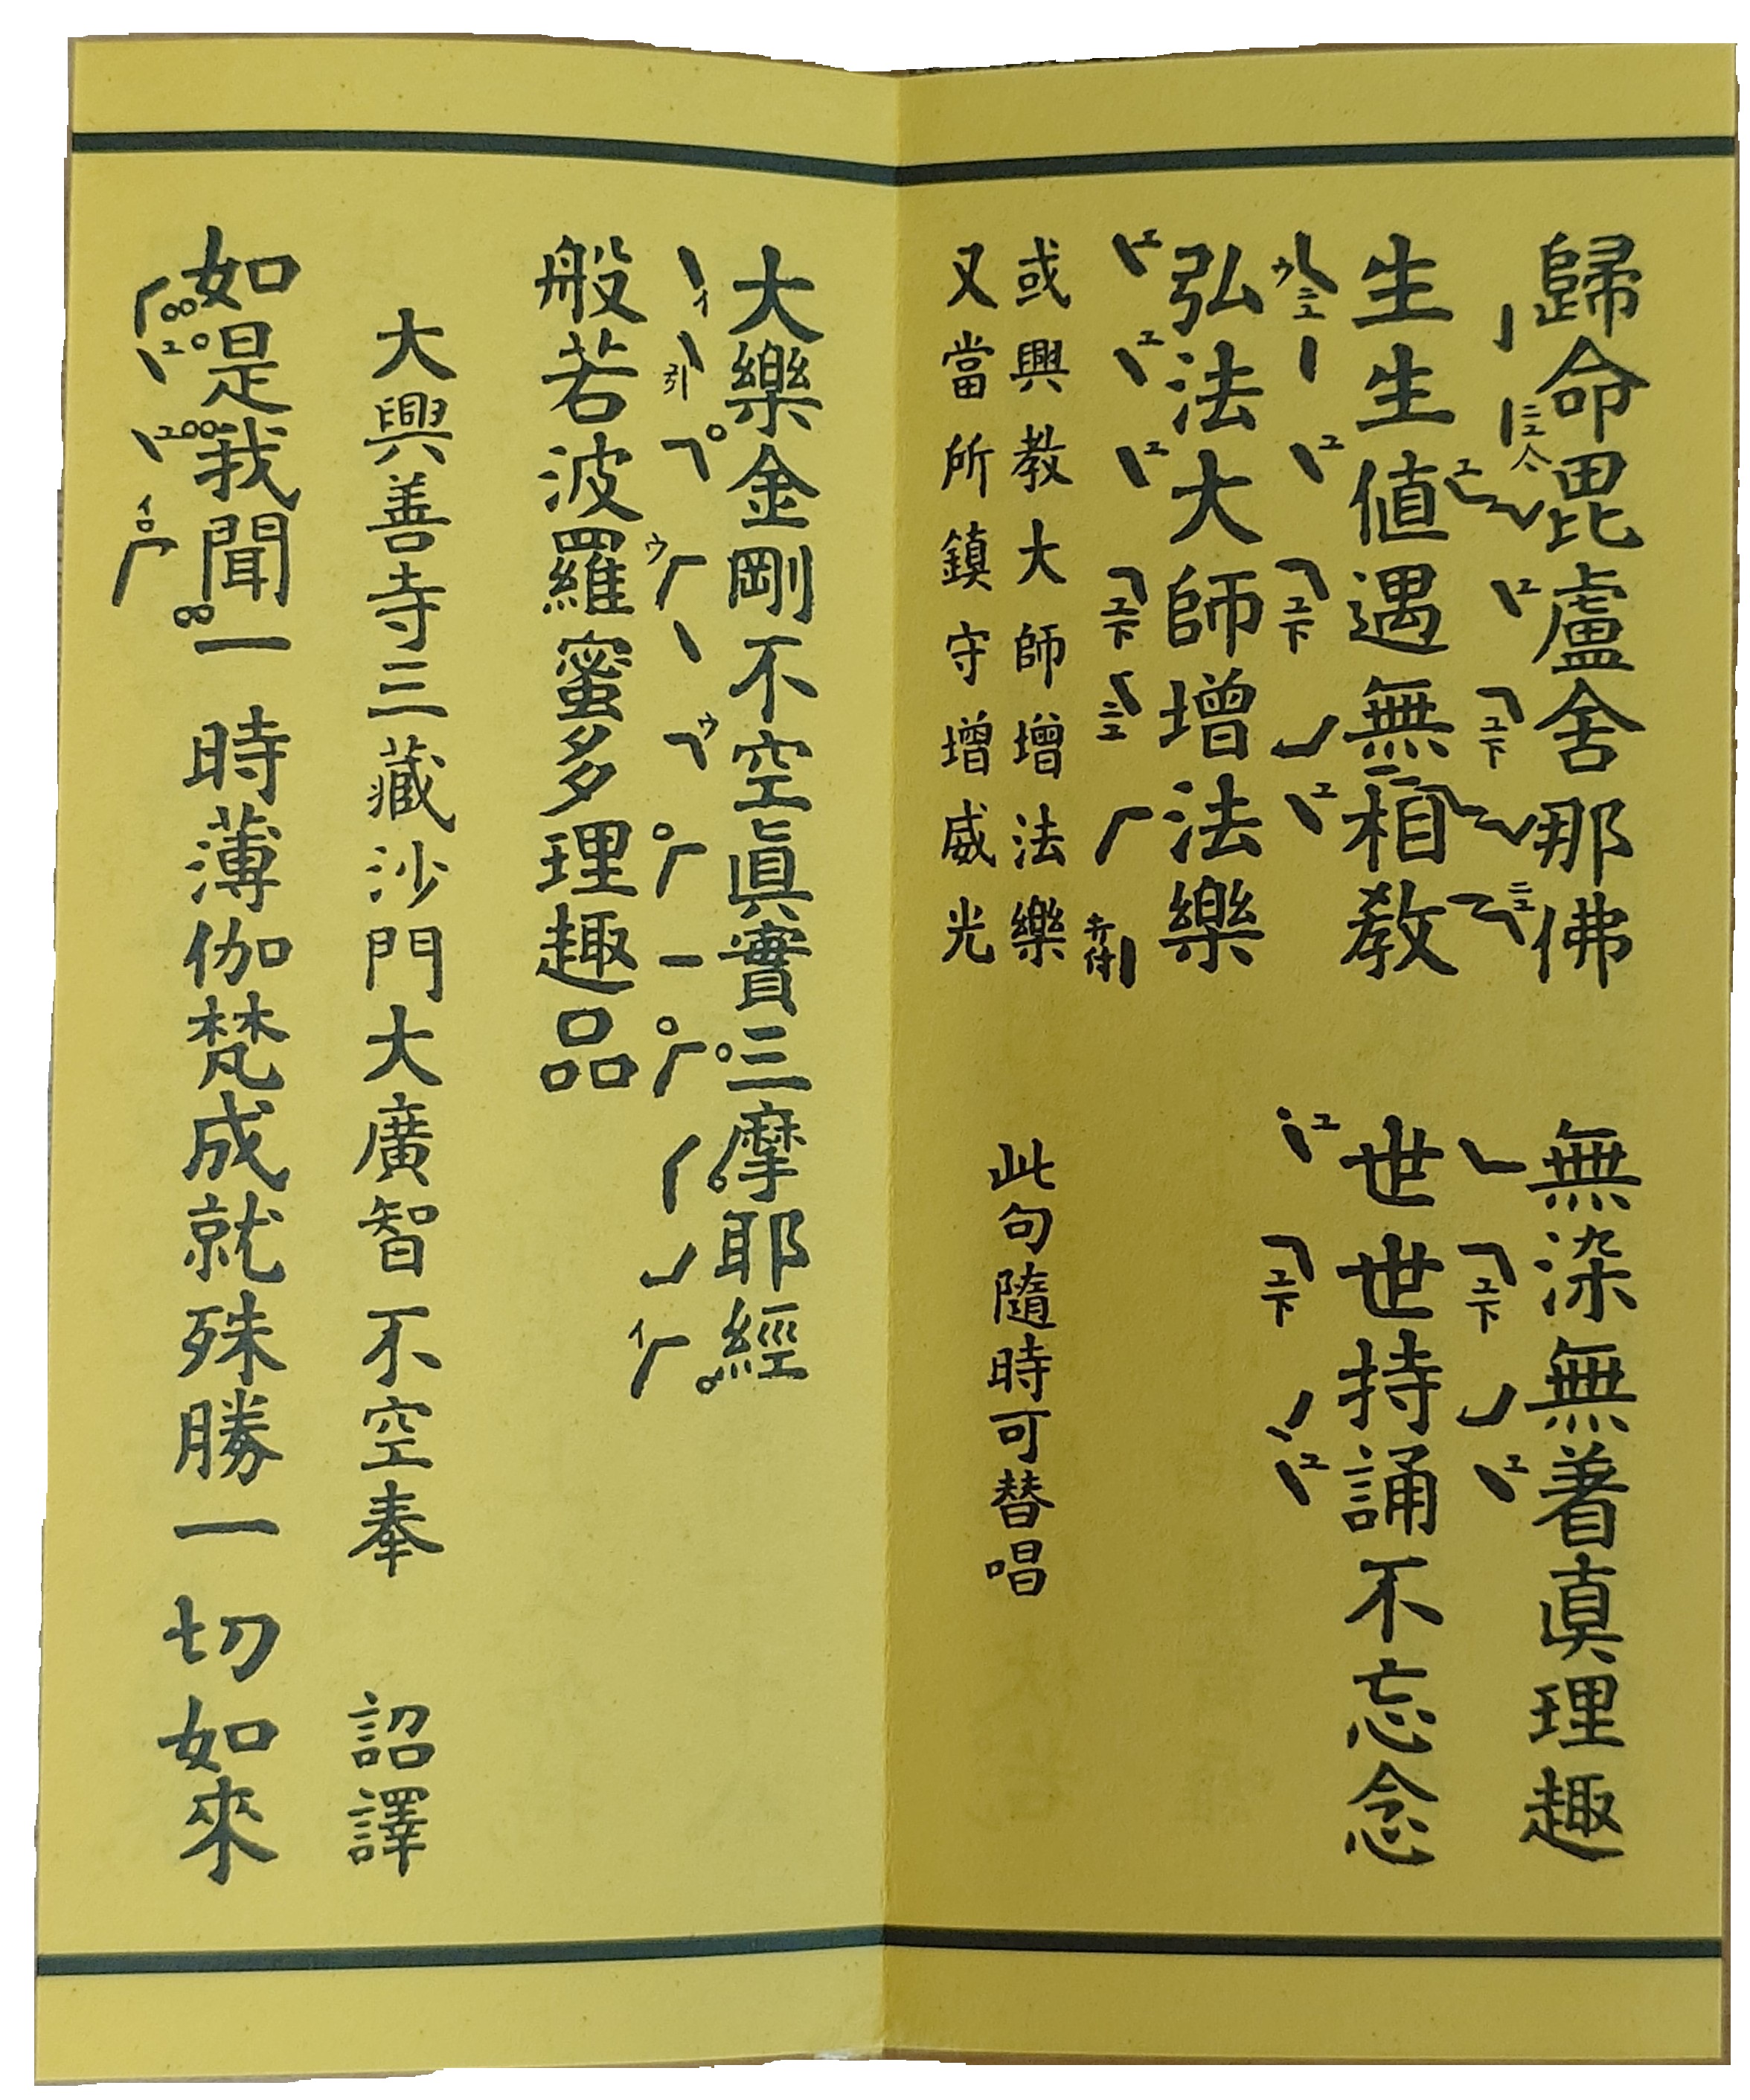 歸命毘盧舍那佛　無染無著眞理趣
生生値遇無相教　世世持誦不忘念
弘法大師增法樂
或興教大師增法樂
又當所鎮守增威光
此句隨時可替唱
大樂金剛不空眞實三摩耶經
般若波羅蜜多理趣品
大興善寺三藏沙門大廣智不空奉　詔譯
如是我聞一時薄伽梵成就殊勝一切如來